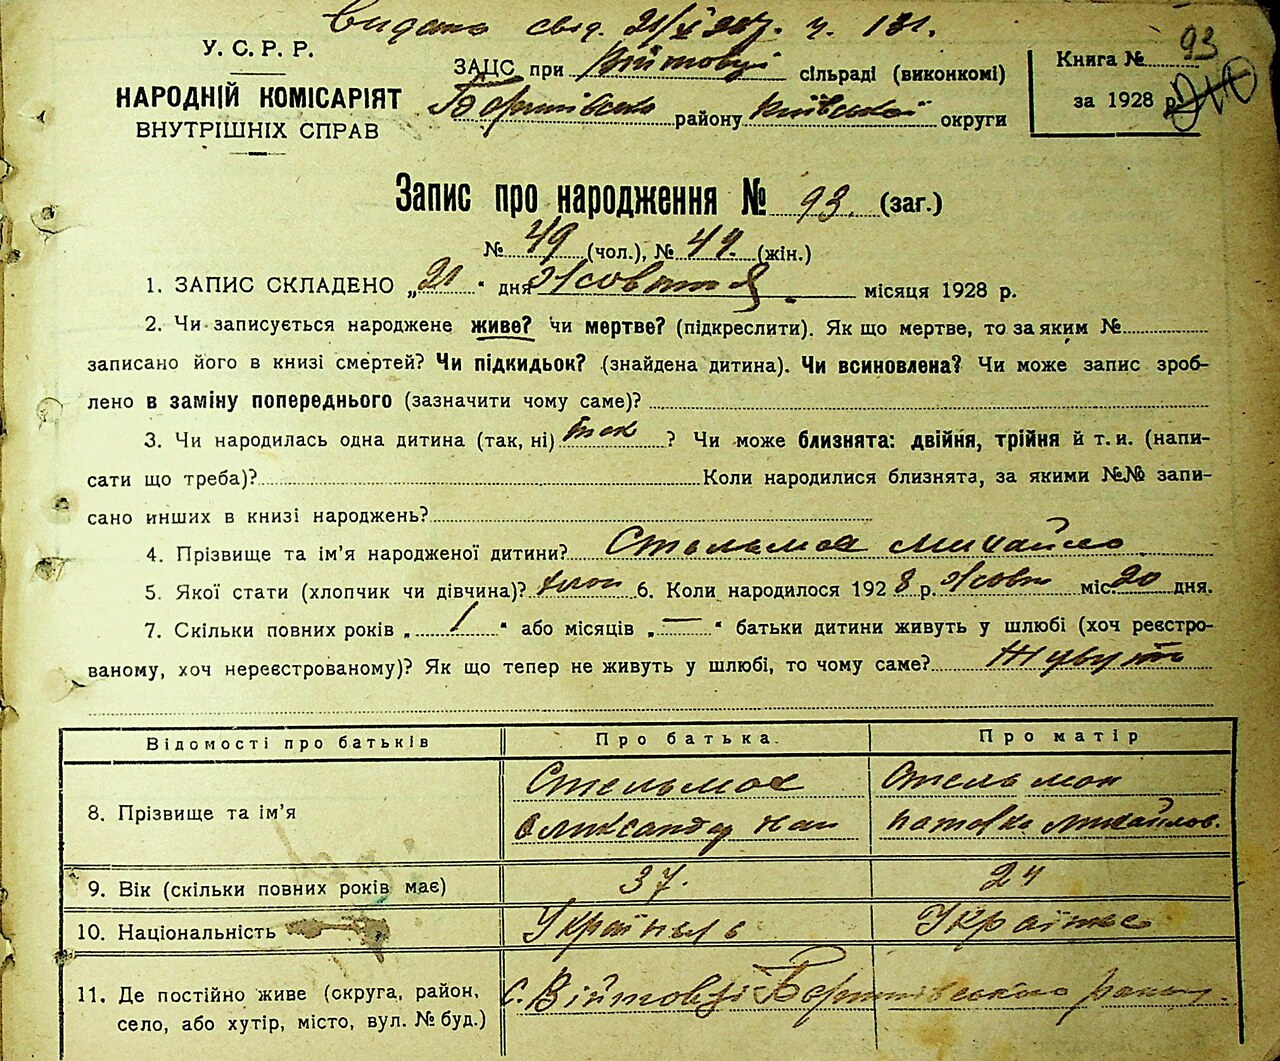 Видано свід. 21/XI 28р. ч. 131.
У. С. Р. Р.
НАРОДНІЙ КОМІСАРІЯТ
ВНУТРІШНІХ СПРАВ
ЗАЦС при Війтовці сільраді (виконкомі)
району Київської округи
Книга № 93
за 1928 р.
Запис про народження № 93. (заг.)
№ 49 (чол.), № 44. (жін.)
1. ЗАПИС СКЛАДЕНО „21“ дня Жовтня місяця 1928 р.
2. Чи записується народжене живе? чи мертве? (підкреслити). Як що мертве, то за яким №
записано його в книзі смертей? Чи підкидьок? (знайдена дитина). Чи всиновлена? Чи може запис зроб-
лено в заміну попереднього (зазначити чому саме)?
3. Чи народилась одна дитина (так, ні) так ? Чи може близнята: двійня, трійня й т. и. (напи-
сати що треба)? Коли народилися близнята, за якими №№ запи-
сано инших в книзі народжень?
4. Прізвище та ім'я народженої дитини? Стельмах Михайло
5. Якої стати (хлопчик чи дівчина)? хлоп 6. Коли народилося 1928 р. Жовт міс. 20 дня.
7. Скільки повних років „ 1 “ або місяців „ — “ батьки дитини живуть у шлюбі (хоч реєстро-
ваному, хоч нереєстрованому)? Як що тепер не живуть у шлюбі, то чому саме? Живуть
Відомості про батьків
Про батька.
Про матір
8. Прізвище та ім'я
Стельмах
Олександр
Стельмах
Михайлов.
9. Вік (скільки повних років має)
37.
24
10. Національність
Українець
Українка
11. Де постійно живе (округа, район,
село, або хутір, місто, вул. № буд.)
с. Війтовці